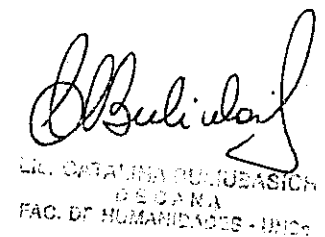 LIC. CATALINA BULIUBASICH
DECANA
FAC. DE HUMANIDADES - UNSa